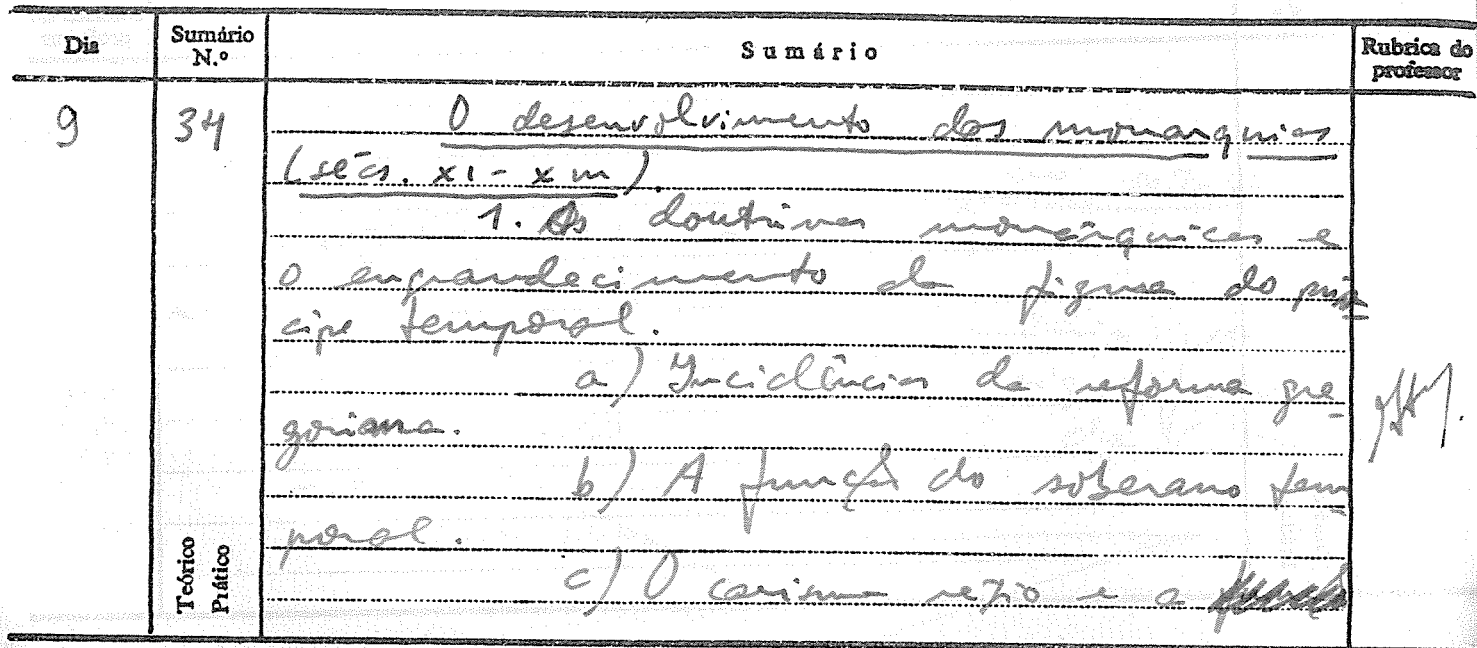 Dia Sumário N.º Sumário Rubrica do professor
9 34 O desenvolvimento das monarquias
(sécs. XI - XIII).
1. As doutrinas monárquicas e
o engrandecimento da figura do prín
cipe temporal.
a) Incidências da reforma gre
goriana.
b) A função do soberano tem
poral.
c) O carisma régio e a
Teórico
Prático